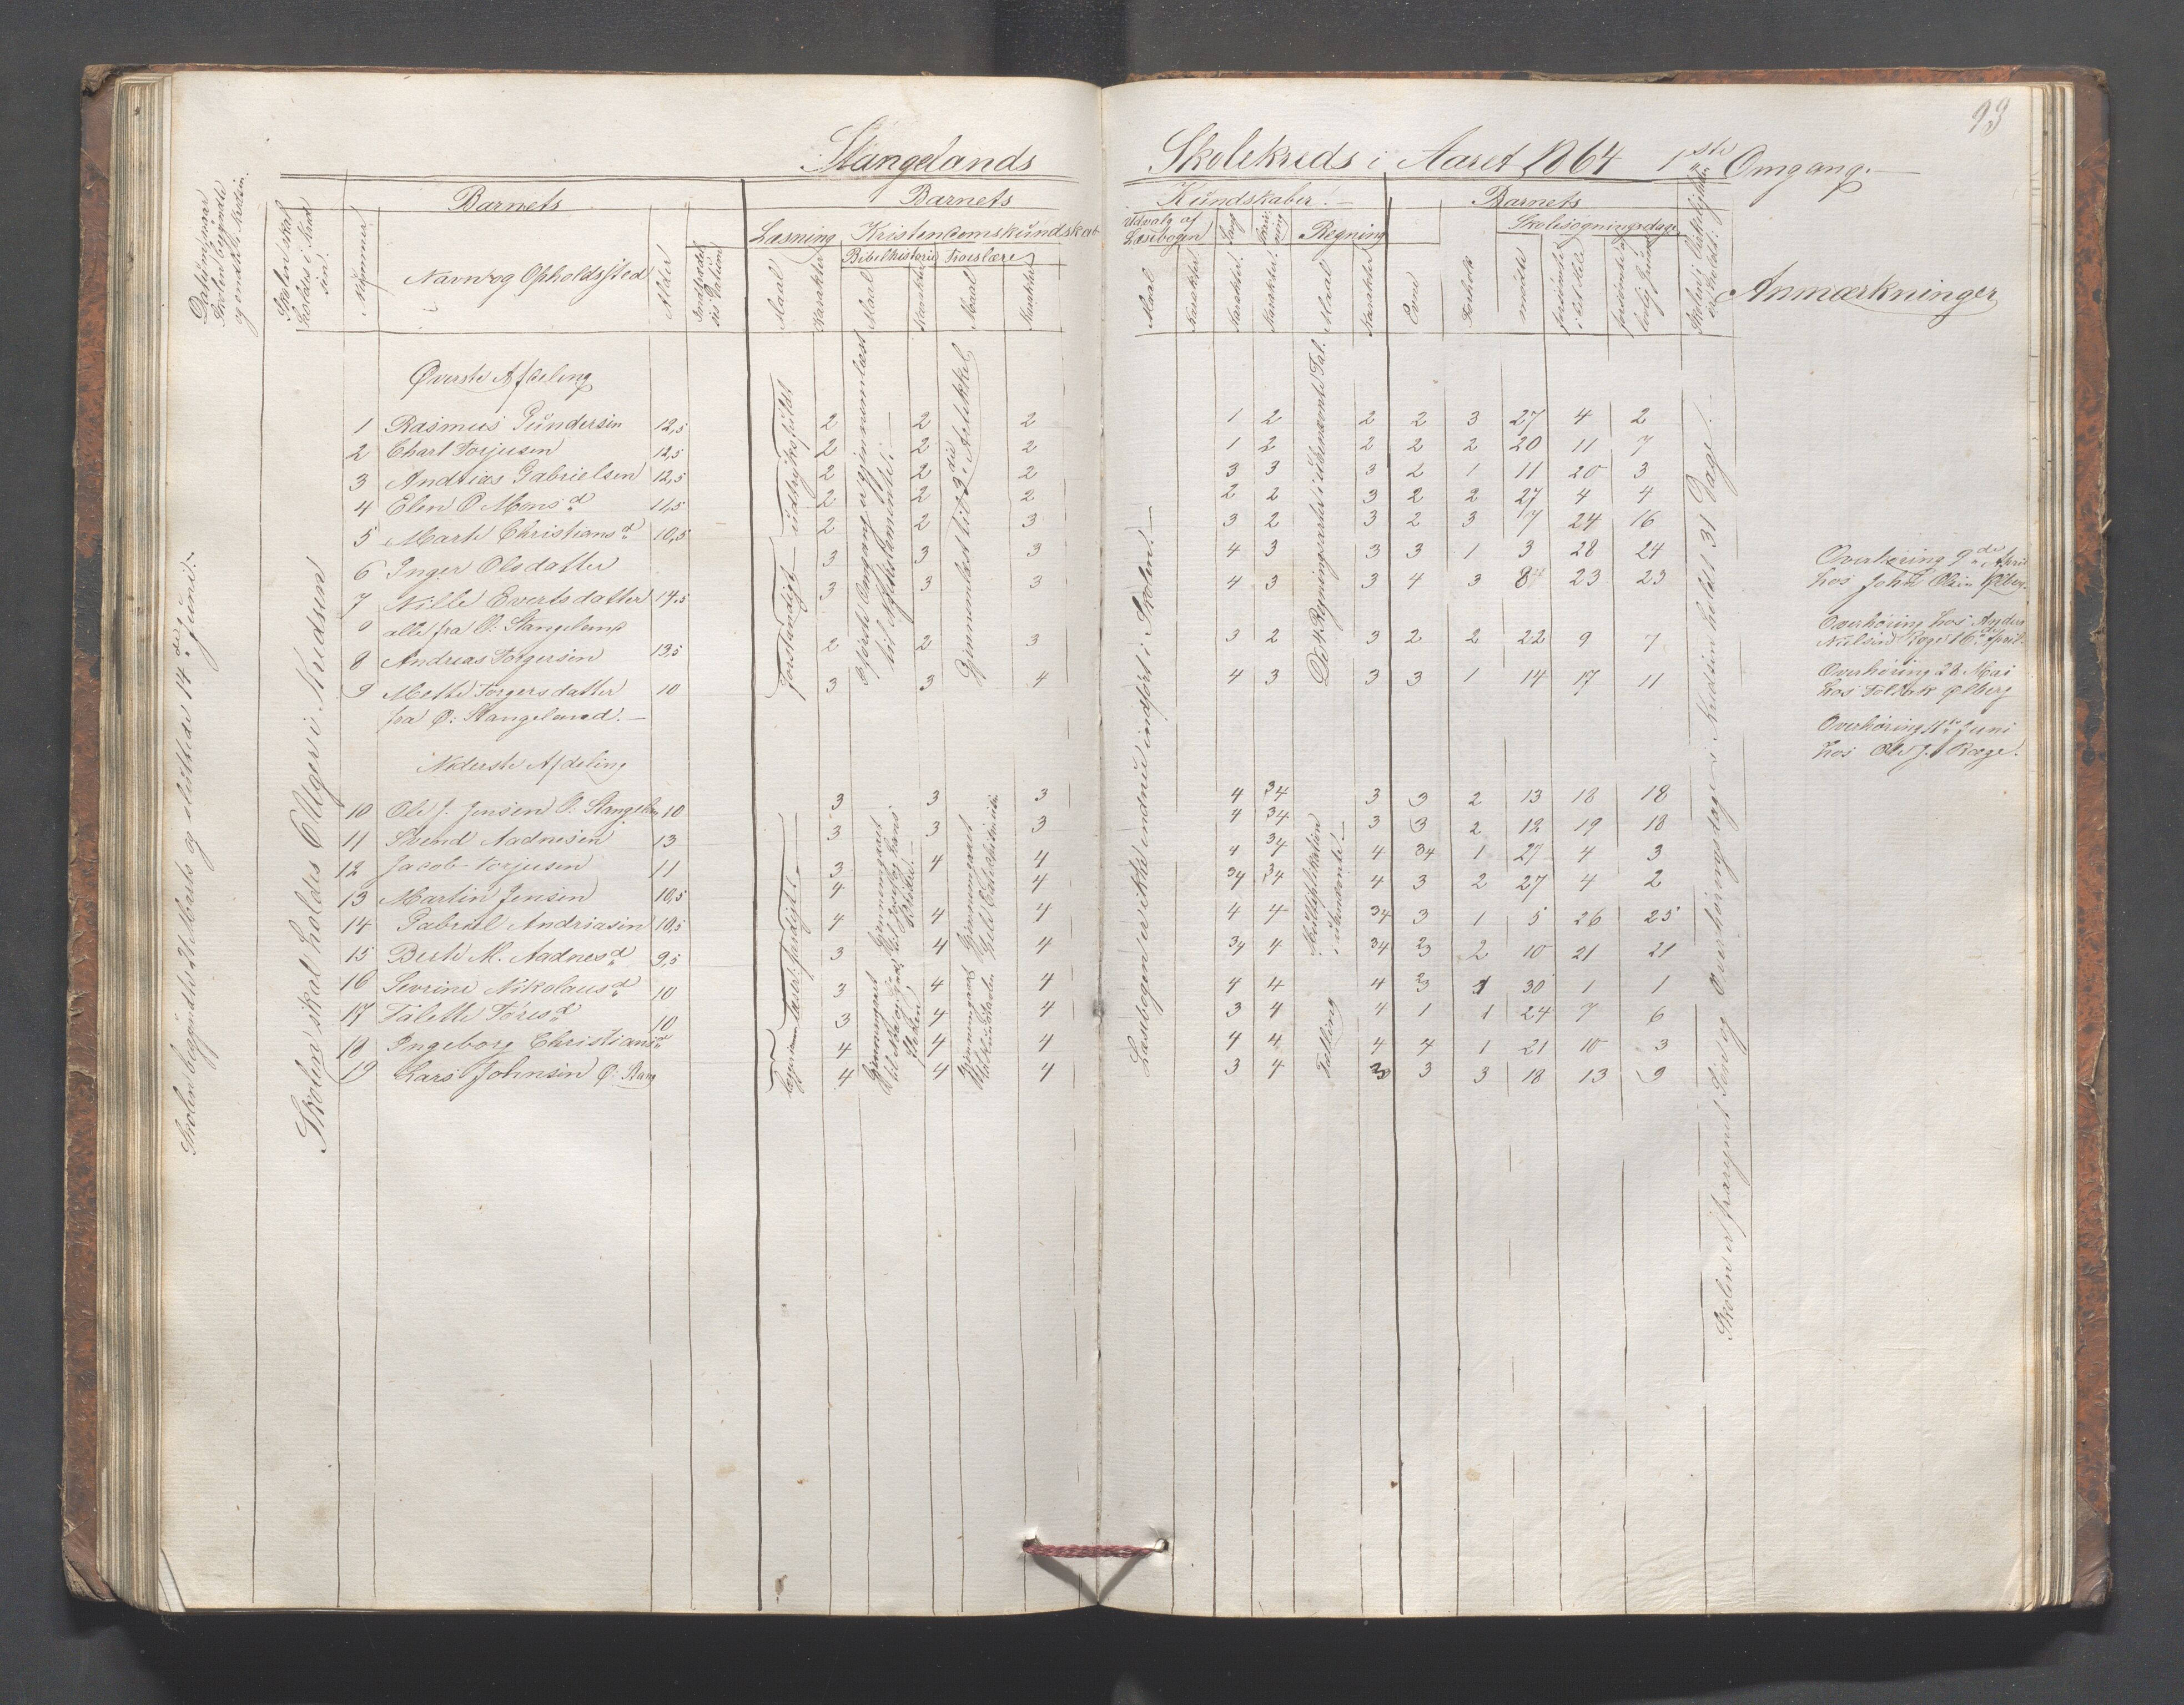 93
Stangelands Skolekreds i Aaret 1864 1ste Omgang.
Datum naar Skolen begyndte og endte i Kredsen.
Skolen skal holdes i Kredsen.
Nognummer
Barnets
Navn og Opholdssted
Alder
Barnets Kundskaber.
Læsning
Maal
Karakter
Kristendomskundskab
Bibelhistorie
Maal
Karakter
Troeslære
Maal
Karakter
Udvalg af Læsebogen
Maal
Karakter
Sang
Karakter
Skrivning
Karakter
Regning
Maal
Karakter
Barnets
Evne
Forhold
Skolesøgningsdage
mødte
forsømte i det Hele
Anmærkninger
Skolen begyndte 21 Marts og sluttede 14de Juni.
Skolen skal holdes 6 Uger i Kredsen
Øverste Afdeling
1 Rasmus Gundersen 12,5 2 2 2 1 2 2 2 3 27 4 2
2 Chart Torjusen 12,5 2 2 2 1 2 2 2 2 20 11 7
3 Andrias Gabrielsen 12,5 2 2 2 3 3 3 2 1 11 20 3
4 Elen O Mons d. 11,5 2 2 2 2 2 3 2 2 27 4 4
5 Marte Christians d. 10,5 2 2 3 3 2 3 2 3 7 24 16
6 Inger Olsdatter 3 3 3 4 3 3 3 1 3 28 24
7 Nille Evertsdatter 14,5 3 3 3 4 3 3 4 3 8 23 23
alle fra V: Stangeland
8 Andreas Torgersen 13,5 2 2 3 3 2 3 2 2 22 9 7
9 Mette Torgersdatter 10 3 3 4 4 3 3 3 1 14 17 11
fra Ø: Stangeland.
Nederste Afdeling
10 Ole J. Jensen V. Stangelan 10 3 3 3 4 34 3 3 2 13 18 18
11 Svend Aadnesen 13 3 3 3 4 34 3 3 2 12 19 18
12 Jacob Torjusen 11 3 4 4 4 34 4 34 1 27 4 3
13 Martin Jensen 10,5 4 4 34 34 4 3 2 27 4 2
14 Gabriel Andriasen 10,5 4 4 4 4 4 34 3 1 5 26 25
15 Berte M. Aadnes d. 9,5 3 4 4 34 4 34 23 2 10 21 21
16 Sevrine Nikolaus d. 10 3 4 4 4 4 4 3 1 30 1 1
17 Talette Tores d. 10 3 4 4 3 4 4 1 1 24 7 6
18 Ingeborg Christians d. 4 4 4 4 4 4 4 1 21 10 3
19 Lars Johnsen Ø: Stang 4 4 4 3 4 3 3 3 18 13 9
forstandigt udtryksfuldt
færdigt
første Omgang er gjennemlæst til Nytestamentet.
Gjennemlæst til 3die Artikkel
Læsebogen er ikke endnu indført i Skolen.
De 4 Regningsarter i ubenævnte Tal.
Multiplikation i ubenævnte.
Tælling
Skolen er fraregnet Søn og Overhøringsdage i Kredsen holdt 31 Dage.
Overhøring 9de April
hos John Olsen Ølberg.
Overhøring hos Anders
Nielsen Roge 16de April.
Overhøring 28 Mai
hos Tollak Ølberg
Overhøring 11te Juni
hos Ole J. Roge.